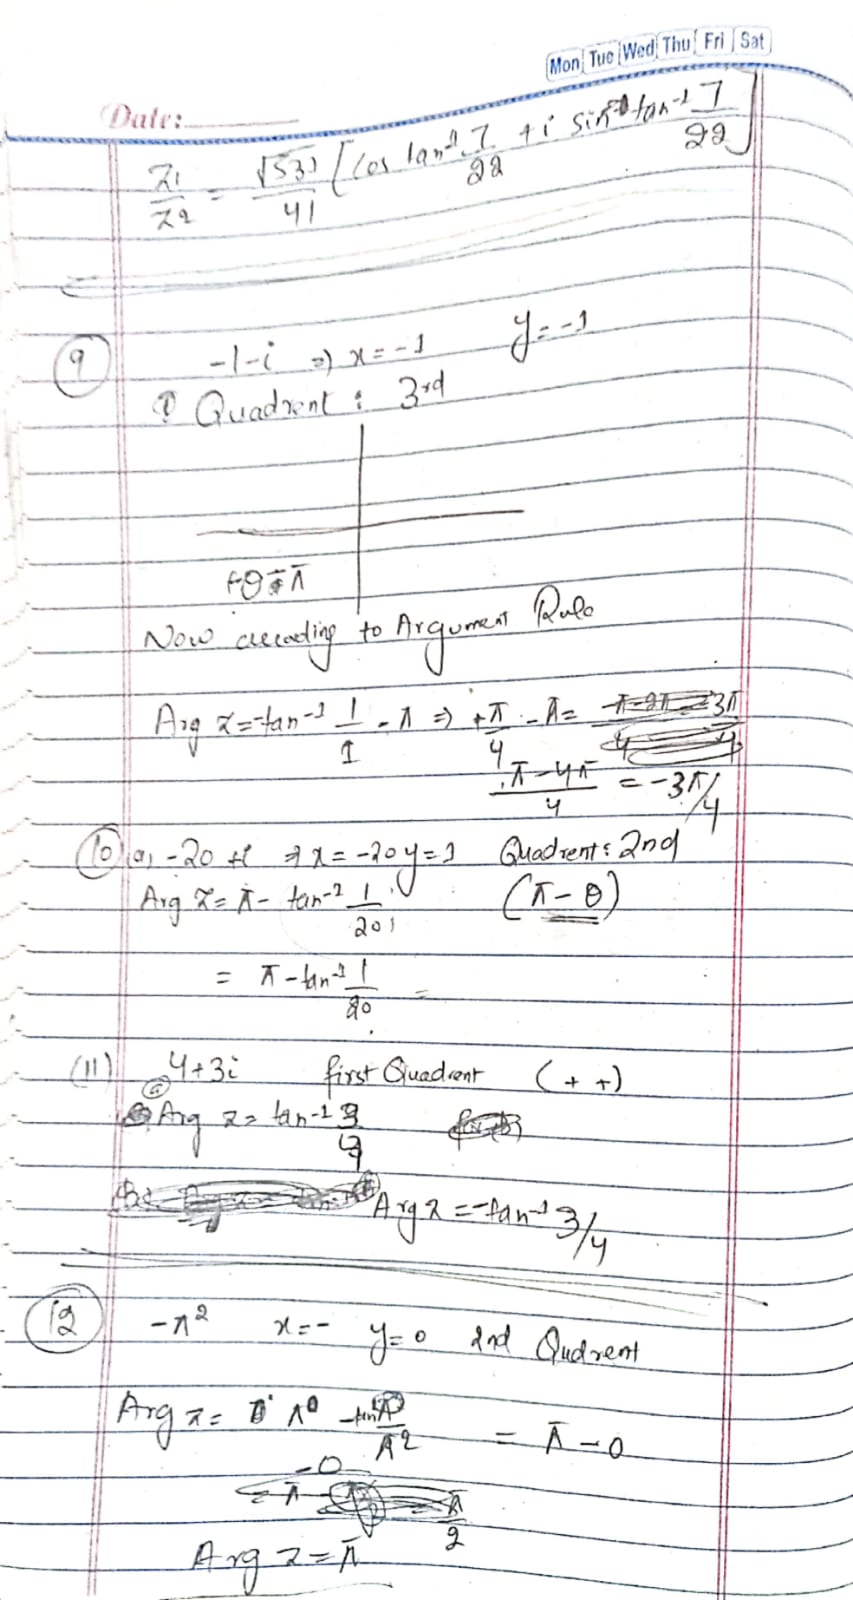 Mon Tue Wed Thu Fri Sat
Date:
z1/z2 = √533/41 [cos tan⁻¹ 7/22 + i sin tan⁻¹ 7/22]
(9) -1-i ⇒ x = -1 y = -1
Quadrent : 3rd
-π
Now according to Argument Rule
Arg z = tan⁻¹ 1/1 - π ⇒ +π/4 - π =
π-4π/4 = -3π/4
(10) (a) -20 + i ⇒ x = -20 y = 1 Quadrent : 2nd
Arg z = π - tan⁻¹ 1/20 (π - θ)
= π - tan⁻¹ 1/20 =
(11) 4+3i first Quadrent (+ +)
(a) Arg z = tan⁻¹ 3/4
Arg z = tan⁻¹ 3/4
(12) -π² x = - y = 0 2nd Qudrent
Arg z = π = π - 0
= π - 0
Arg z = π